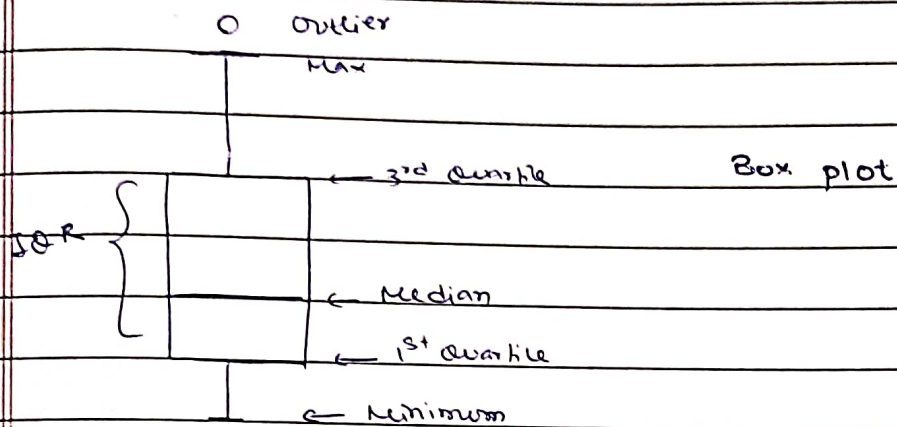 O Outlier
Max
3rd Quartile
Box plot
IQR
Median
1st Quartile
Minimum